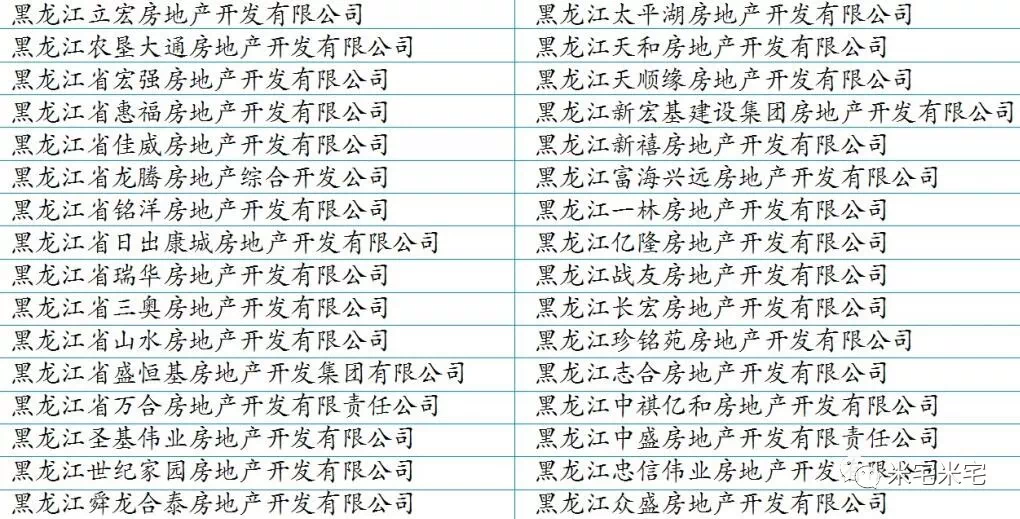 黑龙江立宏房地产开发有限公司
黑龙江太平湖房地产开发有限公司
黑龙江农垦大通房地产开发有限公司
黑龙江天和房地产开发有限公司
黑龙江省宏强房地产开发有限公司
黑龙江天顺缘房地产开发有限公司
黑龙江省惠福房地产开发有限公司
黑龙江新宏基建设集团房地产开发有限公司
黑龙江省佳威房地产开发有限公司
黑龙江新禧房地产开发有限公司
黑龙江省龙腾房地产综合开发公司
黑龙江富海兴远房地产开发有限公司
黑龙江省铭洋房地产开发有限公司
黑龙江一林房地产开发有限公司
黑龙江省日出康城房地产开发有限公司
黑龙江亿隆房地产开发有限公司
黑龙江省瑞华房地产开发有限公司
黑龙江战友房地产开发有限公司
黑龙江省三奥房地产开发有限公司
黑龙江长宏房地产开发有限公司
黑龙江省山水房地产开发有限公司
黑龙江珍铭苑房地产开发有限公司
黑龙江省盛恒基房地产开发集团有限公司
黑龙江志合房地产开发有限公司
黑龙江省万合房地产开发有限责任公司
黑龙江中祺亿和房地产开发有限公司
黑龙江圣基伟业房地产开发有限公司
黑龙江中盛房地产开发有限责任公司
黑龙江世纪家园房地产开发有限公司
黑龙江忠信伟业房地产开发有限公司
米宅米宅
黑龙江舜龙合泰房地产开发有限公司
黑龙江众盛房地产开发有限公司